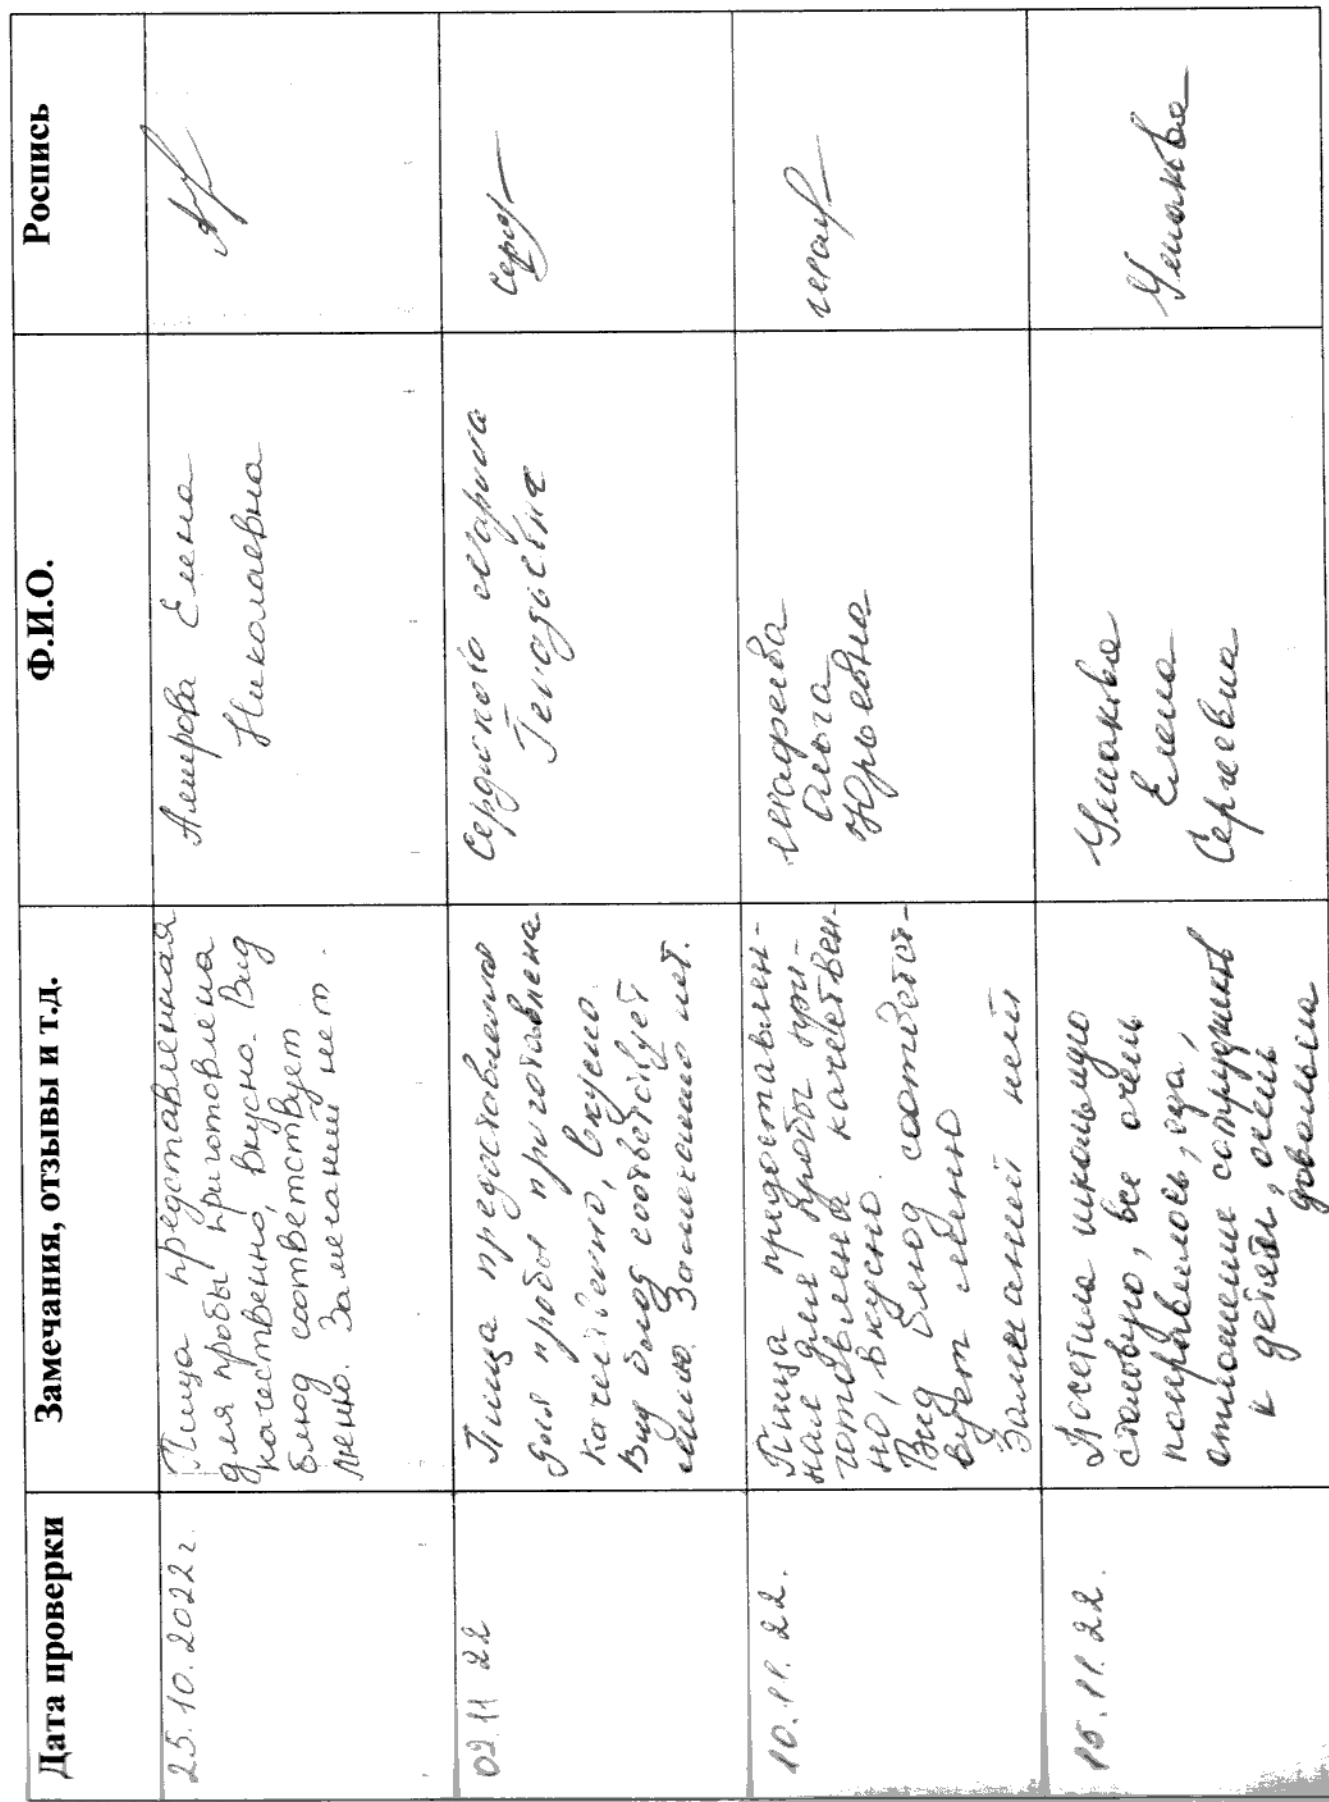 Дата проверки
Замечания, отзывы и т.д.
Ф.И.О.
Роспись
25.10.2022г.
Пища представленная
для пробы приготовлена
качественно, вкусно. Вид
блюд соответствует
меню. Замечаний нет.
Амирова Елена
Николаевна
02.11 22
Пища предоставлена
для пробы приготовлена
качественно, вкусно.
Вид блюд соответствует
меню. Замечаний нет.
Марина
Генадьевна
10.11.22.
Пища предоставлен-
ная для пробы при-
готовлена качествен-
но, вкусно.
Вид блюд соответст-
вует меню
Замечаний нет
Ольга
Юрьевна
15.11.22.
Посетила школьную
столовую, все очень
понравилось, еда,
отношение сотрудников
к детям, очень
довольна
Ушакова
Елена
Сергеевна
Ушакова